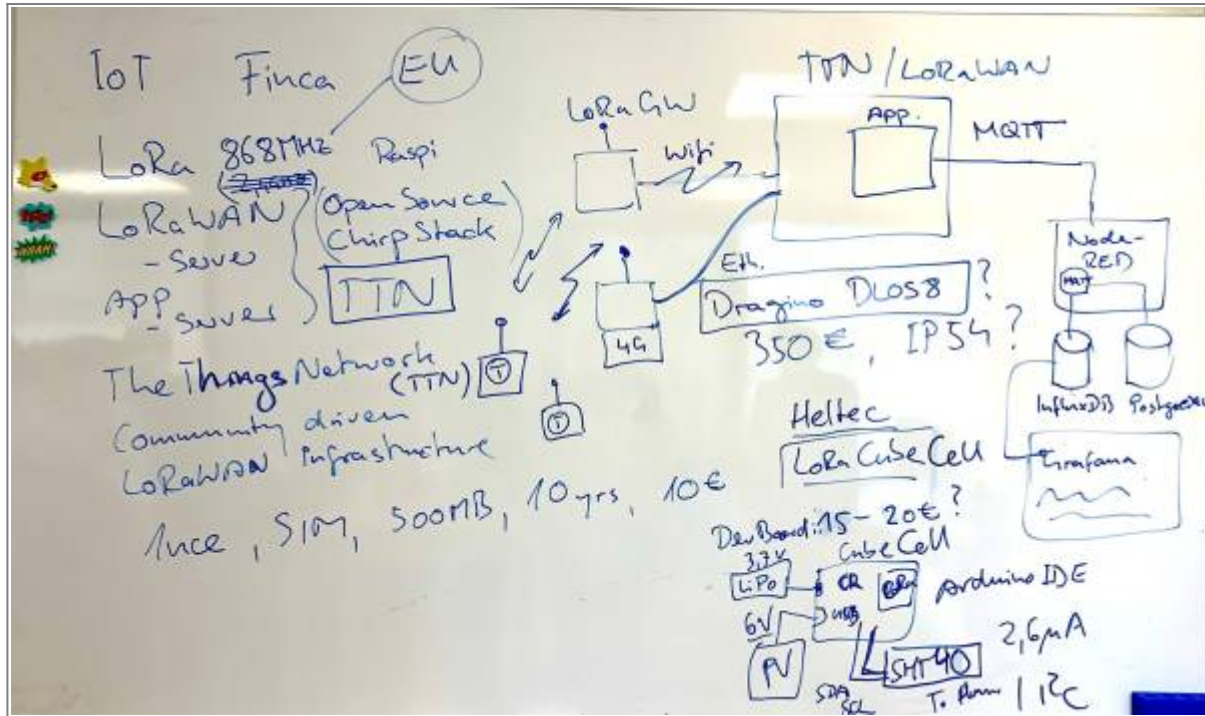 IoT Finca EU
LoRa 868MHz Raspi
LoRaWAN
- Server
App
- Server
(Open Source
ChirpStack)
TTN
The Things Network
(TTN)
Community driven
LoRaWAN Infrastructure
1nce, SIM, 500MB, 10yrs, 10€
LoRa GW
Wifi
4G
T
T
TTN/LoRaWAN
App.
MQTT
Eth.
Dragino DLOS8 ?
350€, IP54 ?
Node-
RED
InfluxDB
Grafana
Heltec
LoRa CubeCell
DevBoard: 15-20€ ?
CubeCell
3,7V
LiPo
6V
PV
USB
LoRa
Arduino IDE
2,6µA
SHT40
SDA
SCL
I²C